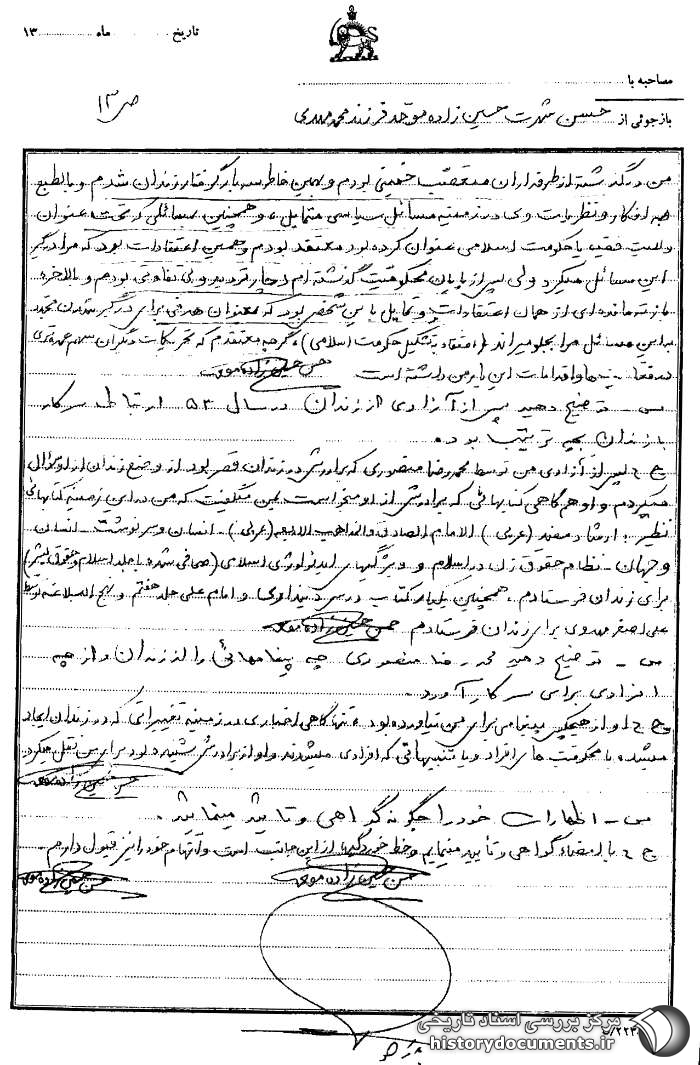 تاریخ ............ ماه ............ ۱۳
مصاحبه با
ص ۱۳
بازجوئی از حسن شهرت حسین زاده موحد فرزند محمد مهدی
من در گذشته از طرفداران متعصب خمینی بودم و بهمین خاطر سه بار گرفتار زندان شدم و بالطبع
به افکار و نظریات وی در زمینه مسائل سیاسی متمایل و همچنین مسائلی که تحت عنوان
ولایت فقیه یا حکومت اسلامی عنوان کرده بود معتقد بودم و همین اعتقادات بود که مرا درگیر
این مسائل میکرد ولی پس از پایان محکومیت گذشته ام دچار تردید و بی تفاوتی بودم و بالاخره
باز ته مانده ای از همان اعتقادات و تمایل باین شخص بود که بعنوان هدفی برای درگیر شدن مجدد
باین مسائل مرا بجلو میراند (اعتقاد به تشکیل حکومت اسلامی) گرچه معتقدم که تحریکات دیگران سهم عمده تری
در و اقدامات این بار من داشته است حسن حسین زاده موحد
س ـ توضیح دهید پس از آزادی از زندان در سال ۵۳ ارتباط سرکار
با زندان بچه ترتیب بوده
ج ـ پس از آزادی من توسط محمدرضا منصوری که برادرش در زندان قصر بود از وضع زندان از او سئوال
میکردم و او هم گاهی کتابهائی که برادرش از او میخواست بمن میگفت که من در این زمینه کتابهائی
نظیر : ارشاد مفید (عربی) الامام الصادق والمذاهب الاربعه (عربی) ـ انسان و سرنوشت ـ انسان
و جهان ـ نظام حقوق زن در اسلام و ویژگیهای ایدئولوژی اسلامی (صحافی شده با جلد اسلام و حقوق بشر)
برای زندان فرستادم . همچنین یکبار کتاب درسی و امام علی جلد هفتم و نهج البلاغه توسط
علی اصغر مهدوی برای زندان فرستادم حسن حسین زاده موحد
س ـ توضیح دهید محمدرضا منصوری چه پیغامهائی را از زندان و از چه
افرادی برای سرکار آورد .
ج ـ او از هیچکس پیغامی برای من نیاورده بود . تنها گاهی اخباری در زمینه تغییراتی که در زندان ایجاد
میشد یا محکومیت های افراد و یا تنبیهاتی که افرادی میشدند و او از برادرش شنیده بود برای من نقل میکرد
حسن حسین زاده موحد
س ـ اظهارات خود را چگونه گواهی و تائید مینمائید .
ج ـ با امضاء گواهی و تأیید مینمایم و خط خوردگیها از این جانب است و اتهام خود را نیز قبول دارم .
حسن حسین زاده موحد حسن حسین زاده موحد
مرکز بررسی اسناد تاریخی
historydocuments.ir